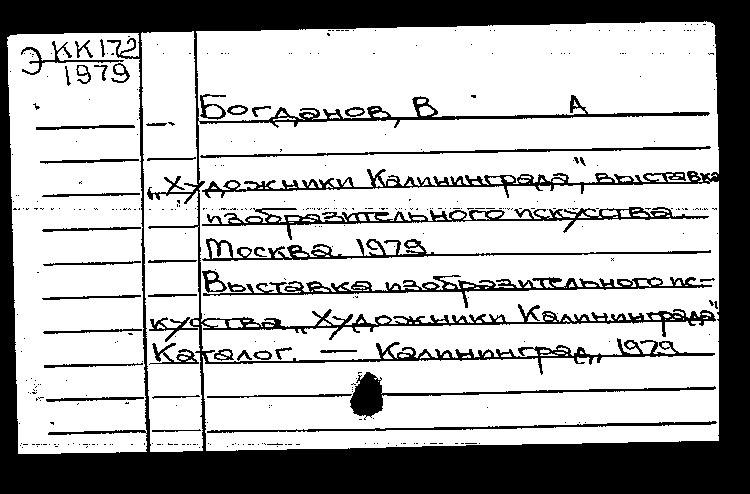 Э КК172
1979
Богданов, В А
„Художники Калининграда", выставка
изобразительного искусства.
Москва. 1979.
Выставка изобразительного ис=
кусства „Художники Калининграда"
Каталог. — Калининград,, 1979.